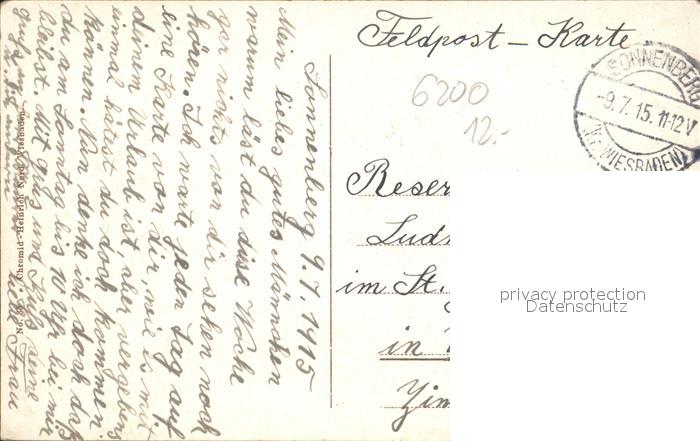 Sonnenberg 9.7.1915
Mein liebes gutes Männchen
warum läst du diese Woche
gar nichts von dir sehen noch
hören. Ich warte jeden Tag auf
eine Karte von dir, wie es mit
deinem Urlaub ist, aber vergebens
einmal hätest du doch kommen
können. Nun denke ich doch daß
du am Sonntag bis 10 Uhr bei mir
bleibst. Mit Gruß und Kuß deine
Frau
No. 38 • Chromid-Heinrich Nord Wiesbaden
Feldpost – Karte
6200
12.-
SONNENBERG
-9.7.15. 11-12 V
WIESBADEN)
Reser
Ludw
im St.
in
Zim
privacy protection
Datenschutz